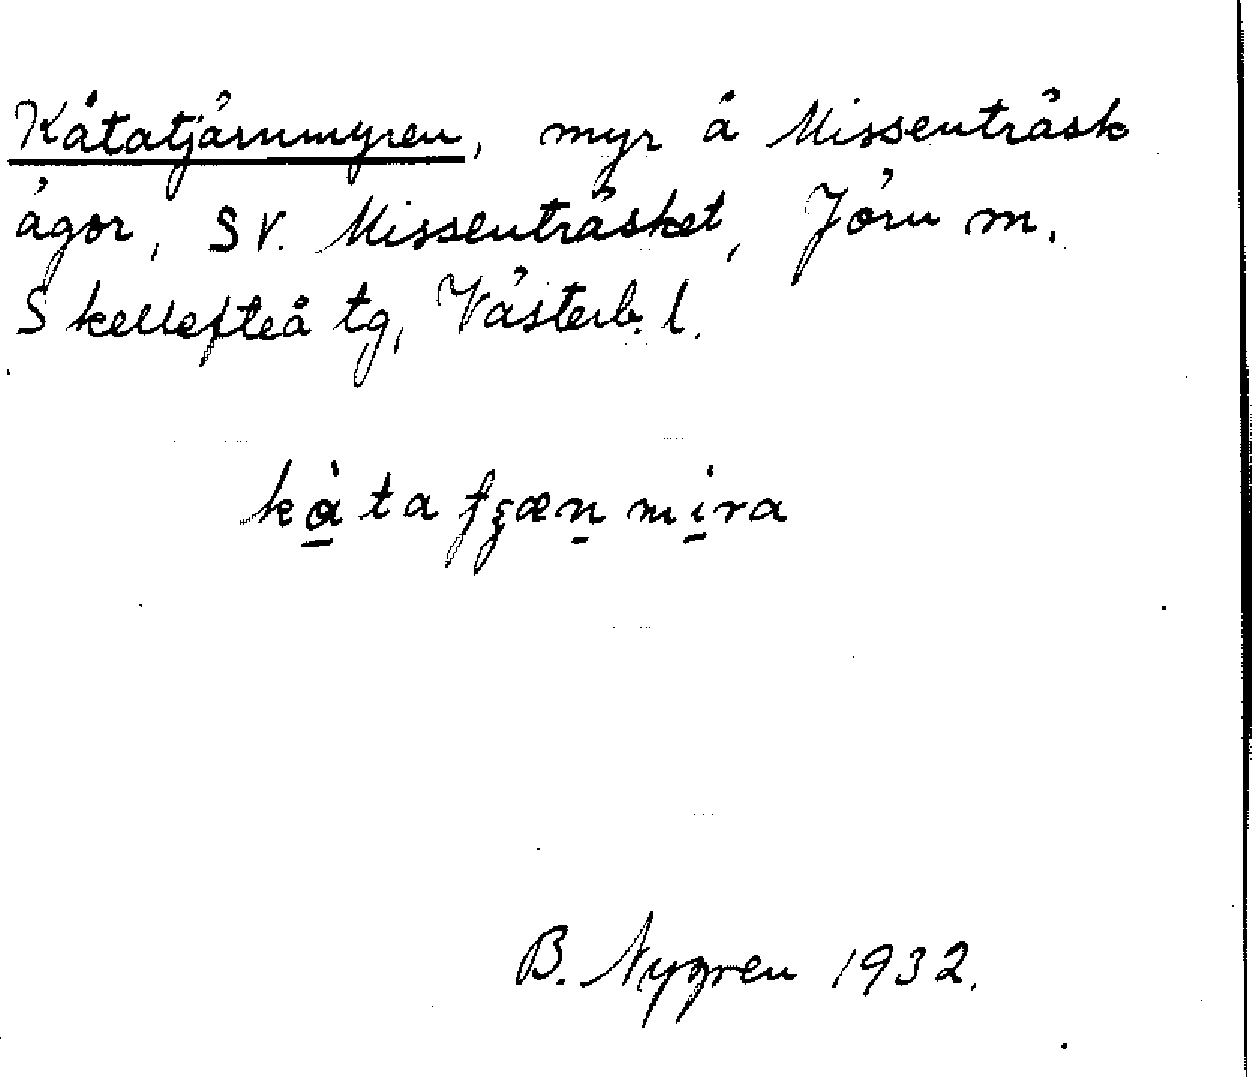 Kåtatjärnmyren, myr å Missenträsk
ägor, SV. Missenträsket, Jörn m.
Skellefteå tg, Västerb. l.
B. Nygren 1932.